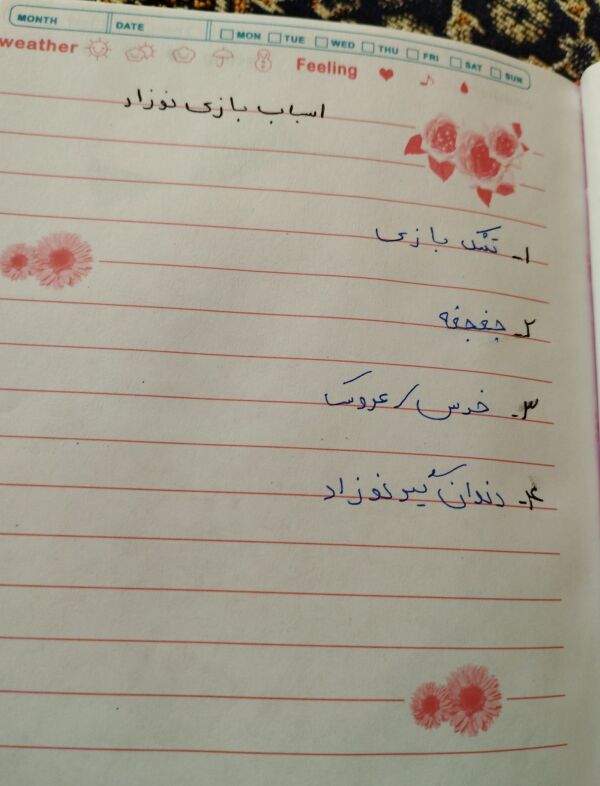 MONTH DATE MON TUE WED THU FRI SAT SUN
weather Feeling
اسباب بازی نوزاد
۱- تشک بازی
۲- جغجغه
۳- خرس/عروسک
۴- دندان گیر نوزاد